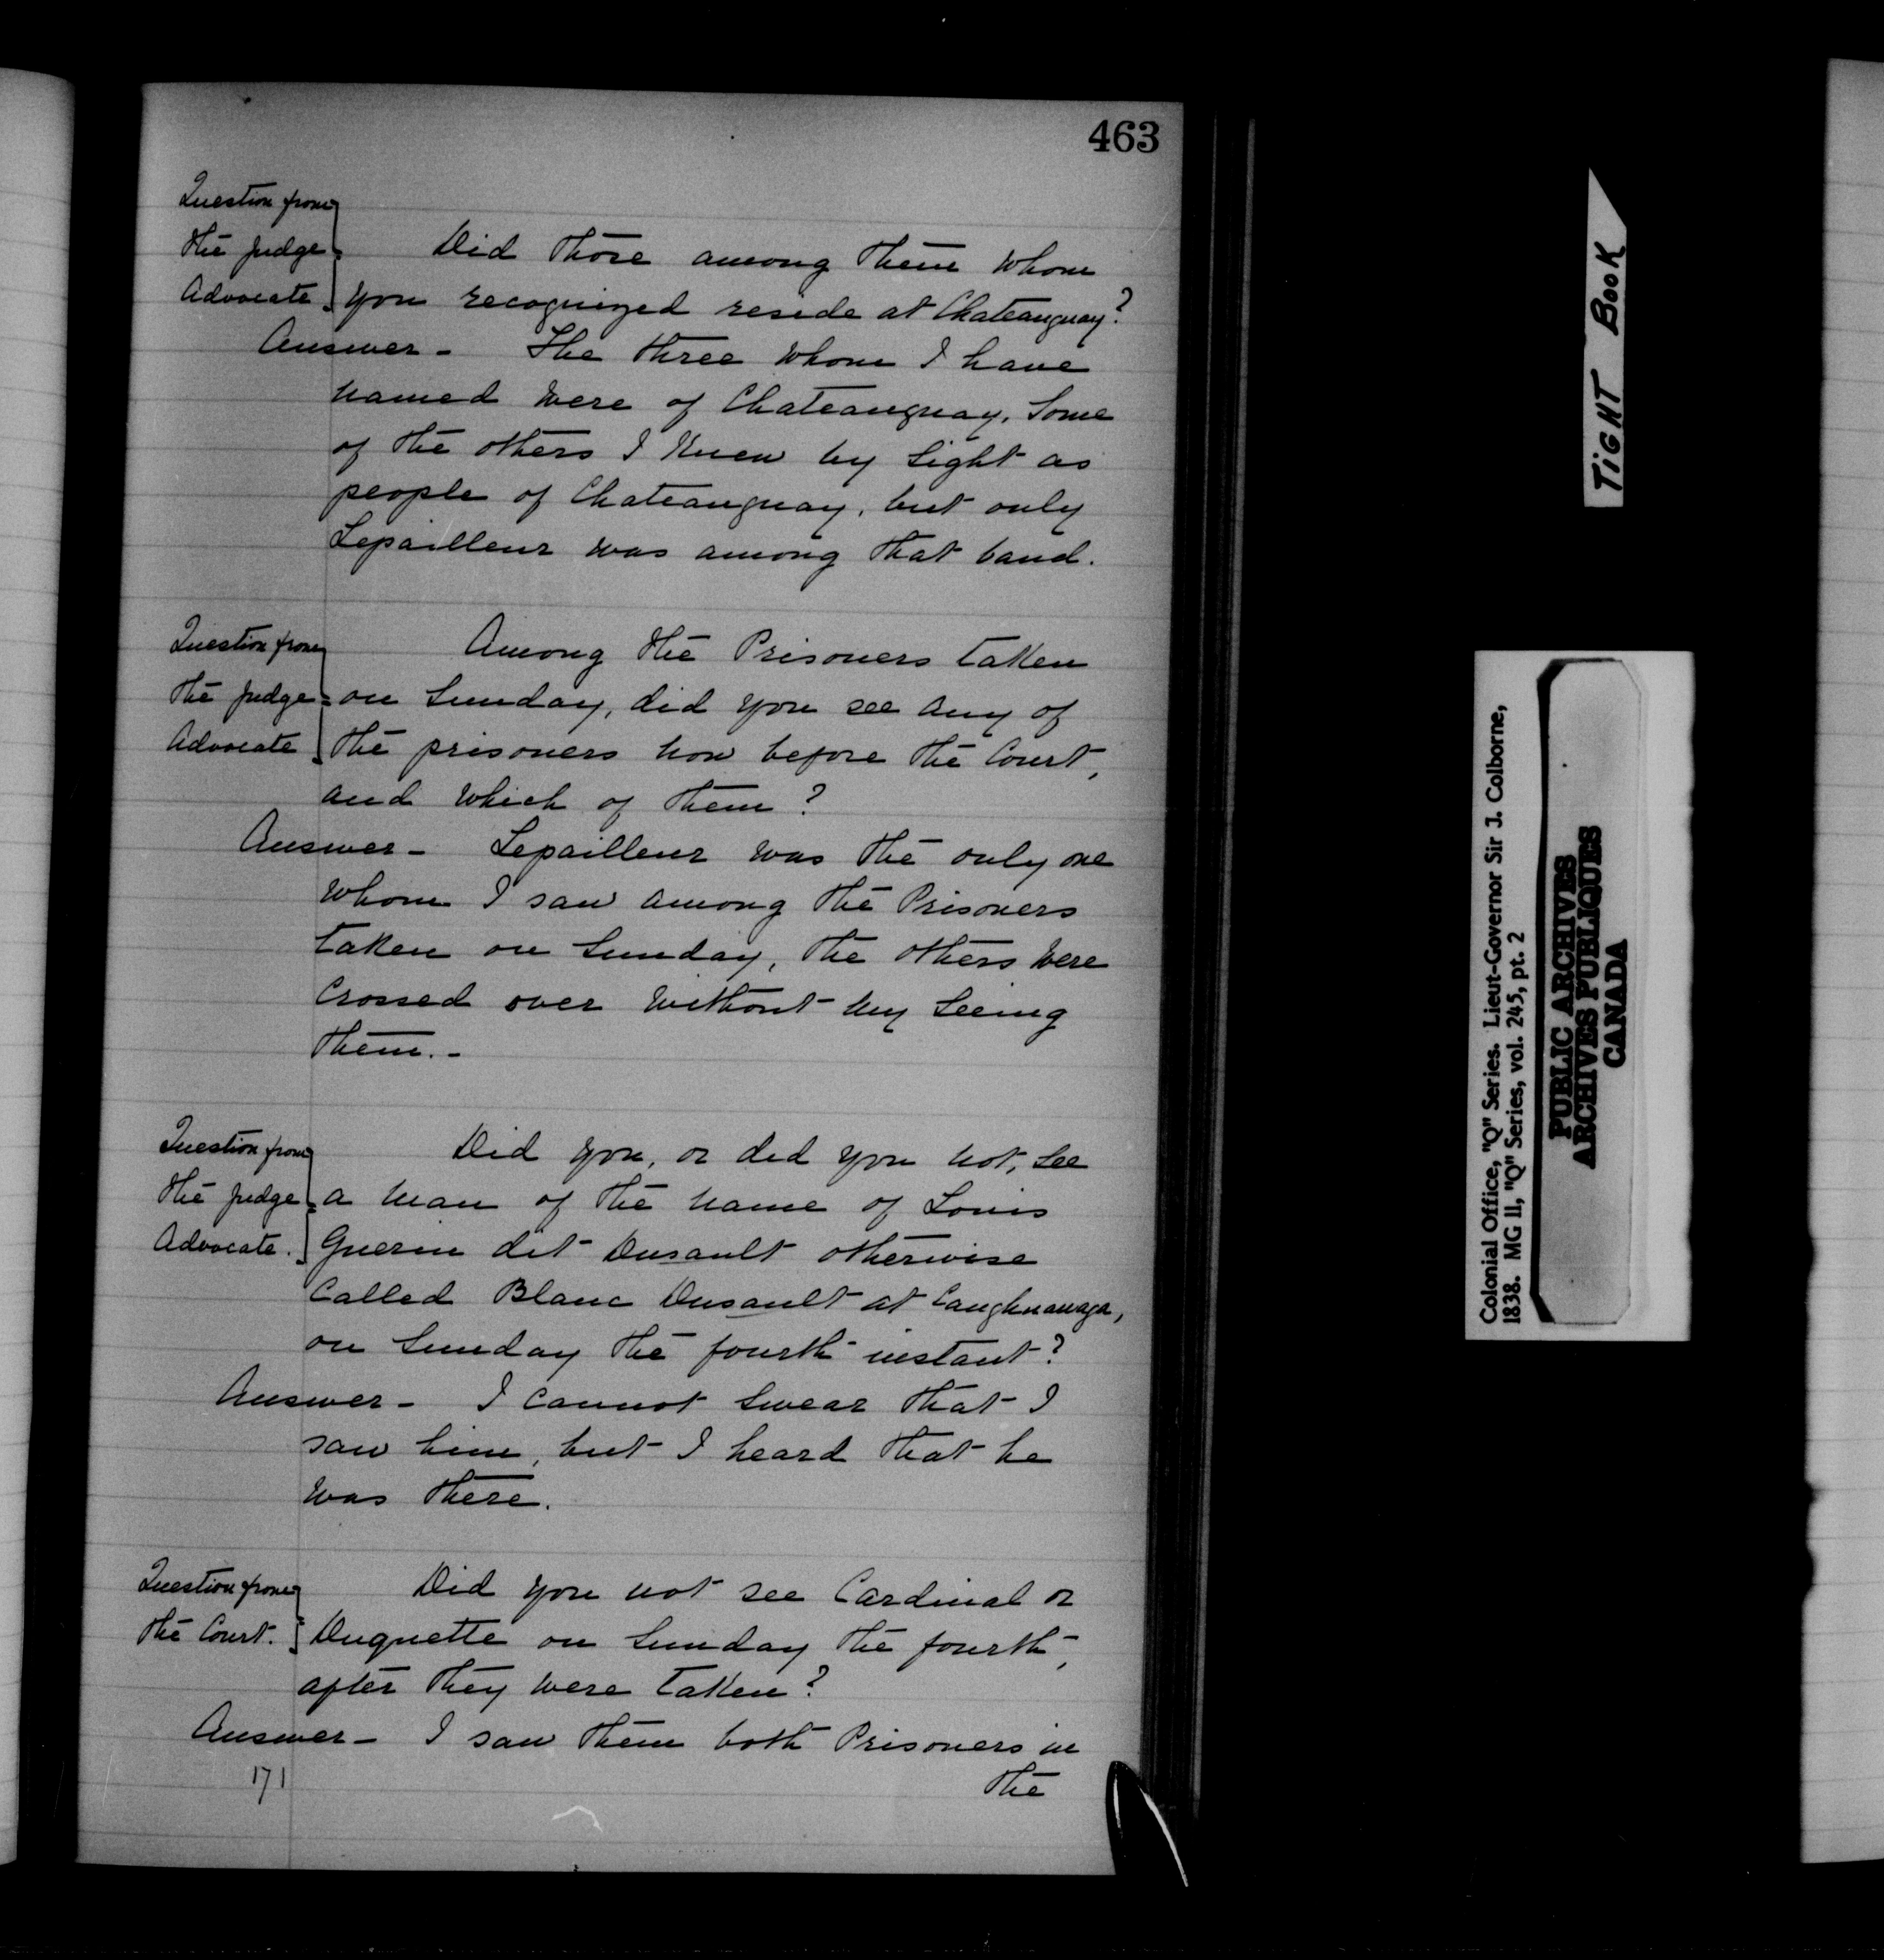 463
Question from
the Judge Did those among them whom
Advocate you recognized reside at Chateauguay?
Answer - The three whom I have
named were of Chateauguay. Some
of the others I knew by sight as
people of Chateauguay, but only
Lepailleur was among that band.
Question from Among the Prisoners taken
the Judge on Sunday, did you see any of
Advocate the prisoners now before the Court,
and which of them?
Answer - Lepailleur was the only one
whom I saw among the Prisoners
taken on Sunday, the others were
crossed over without my seeing
them. -
Question from Did you, or did you not, see
the Judge a man of the name of Louis
Advocate. Guerin dit Dusault otherwise
called Blanc Dusault at Caughnawaga,
on Sunday the fourth instant?
Answer - I cannot swear that I
saw him, but I heard that he
was there.
Question from Did you not see Cardinal or
the Court. Duquette on Sunday the fourth,
after they were taken?
Answer - I saw them both Prisoners in
171 the
TIGHT BOOK
Colonial Office, "Q" Series. Lieut-Governor Sir J. Colborne,
1838. MG II, "Q" Series, vol. 245, pt. 2
PUBLIC ARCHIVES
ARCHIVES PUBLIQUES
CANADA